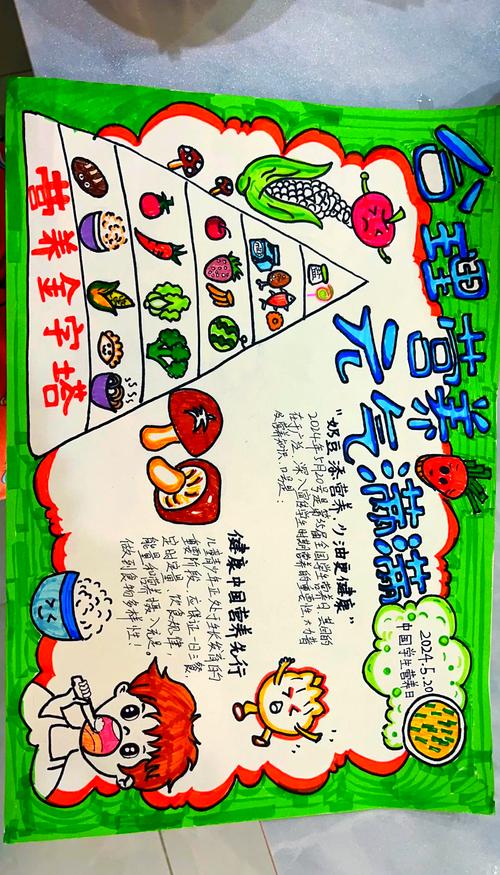 合理营养
元气满满
营养金字塔
2024.5.20
中国学生营养日
“奶豆添营养 少油更健康”
2024年5月20号是第35届全国学生营养日，其目的
在于广泛、深入宣传学生时期营养的重要性，大力普
及营养知识，口号是：
健康中国营养先行
儿童青少年正处于生长发育的
重要阶段，应保证一日三餐、
定时定量、饮食规律，
能量和营养摄入充足，
做到食物多样性！